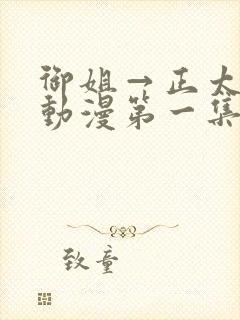 御姐→正太
動漫第一集
致童